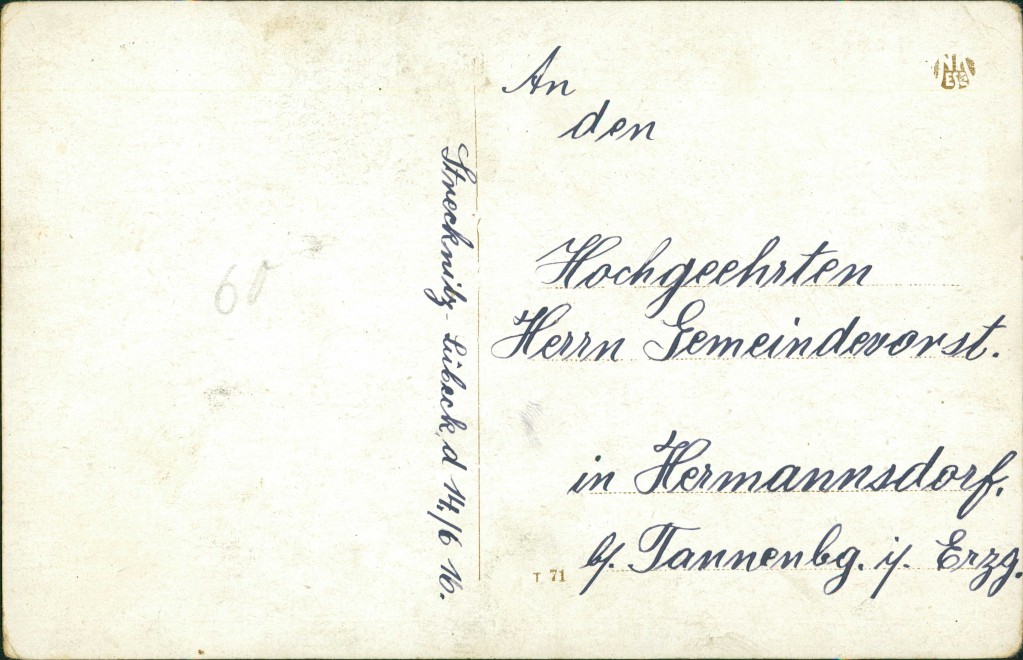 An
den
Hochgeehrten
Herrn Gemeindevorst.
in Hermannsdorf.
b/. Tannenbg. i/. Erzg.
Strecknitz - Lübeck, d 14./6 16.
60
T 71